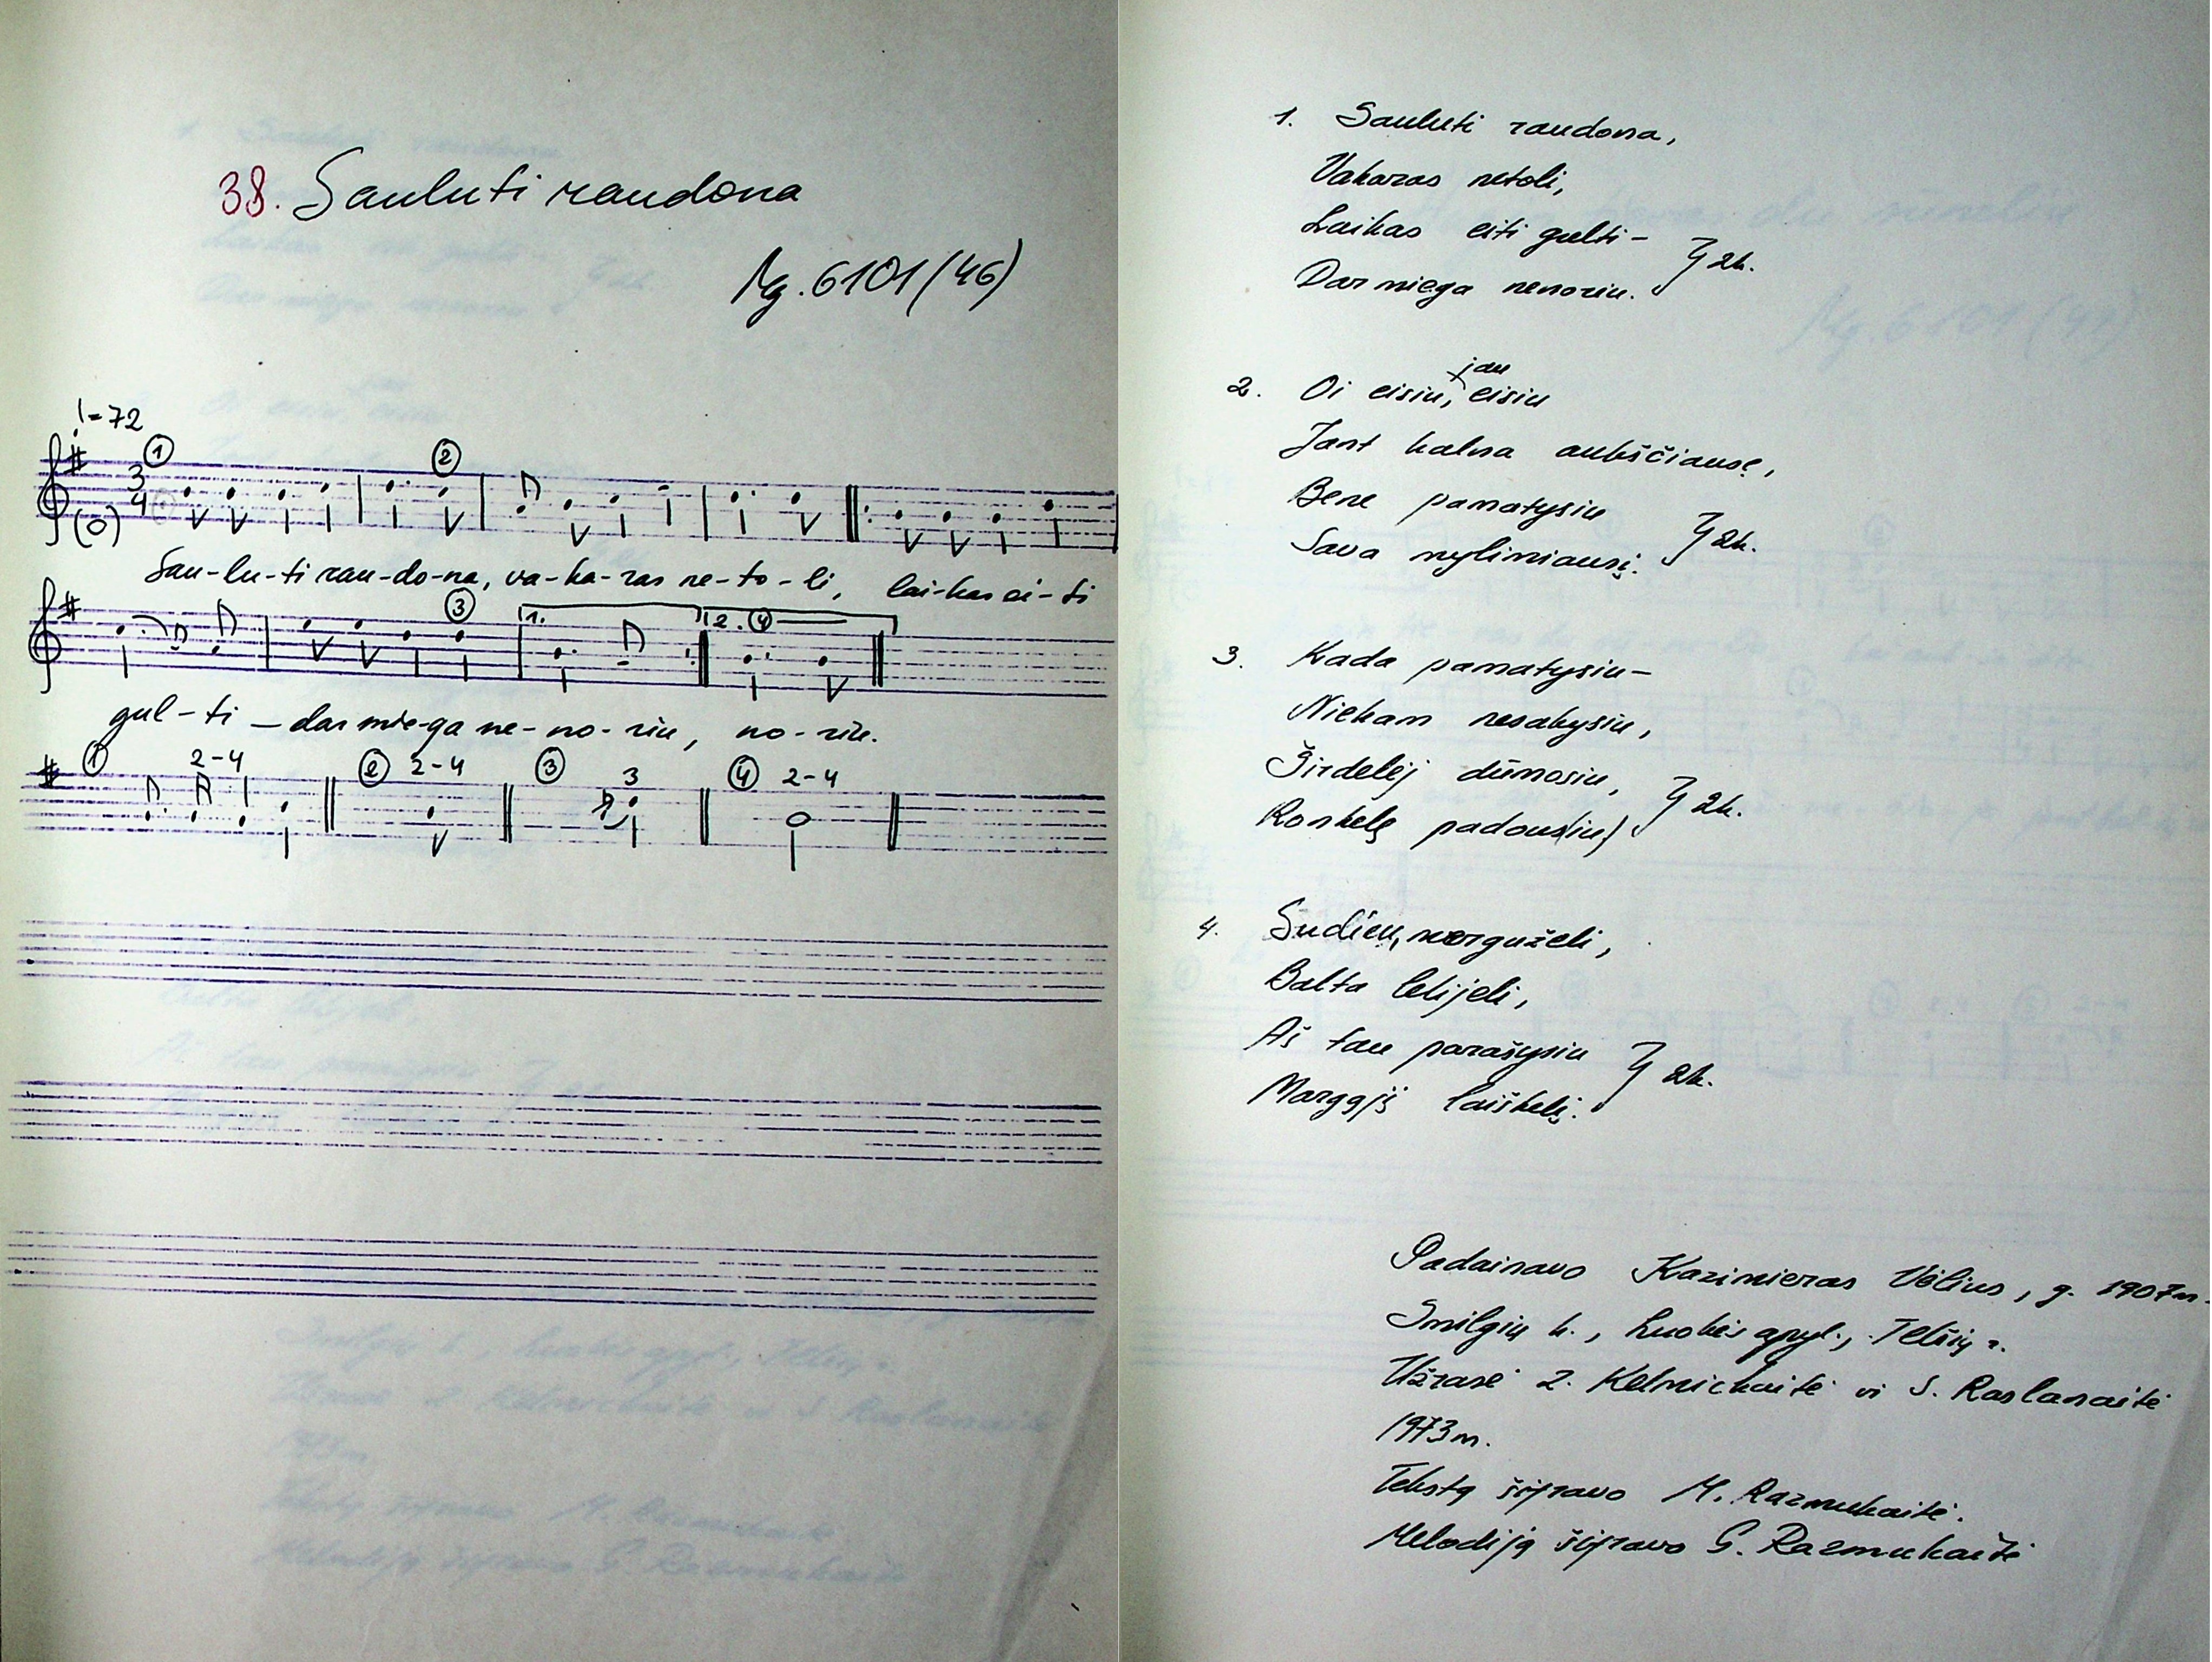 38. Sauluti raudona
Mg. 6101 (46)
♩=72
① ②
3
4
(O)
Sau-lu-ti rau-do-na, va-ka-ras ne-to-li, lai-kas ei-ti
③ 1. 2. ④
gul-ti – dar mie-ga ne-no-riu, no-riu.
① 2-4 ② 2-4 ③ 3 ④ 2-4
1. Sauluti raudona,
Vakaras netoli,
Laikas eiti gulti –
Dar miega nenoriu. } 2k.
2. Oi eisiu, jau eisiu
Jant kalna aukščiausę,
Bene pamatysiu
Sava mylimiausį. } 2k.
3. Kada pamatysiu –
Niekam nesakysiu,
Širdelėj dūmosiu,
Rankelę padous(iu) } 2k.
4. Sudieu, merguželi,
Balta lelijeli,
Aš tau parašysiu
Margąjį laiškelį. } 2k.
Padainavo Kazimieras Vėlius, g. 1907 m.
Smilgių k., Luokės apyl., Telšių r.
Užrašė Z. Kelmickaitė ir S. Raslanaitė
1973 m.
Tekstą šifravo M. Razmukaitė.
Melodiją šifravo G. Razmukaitė